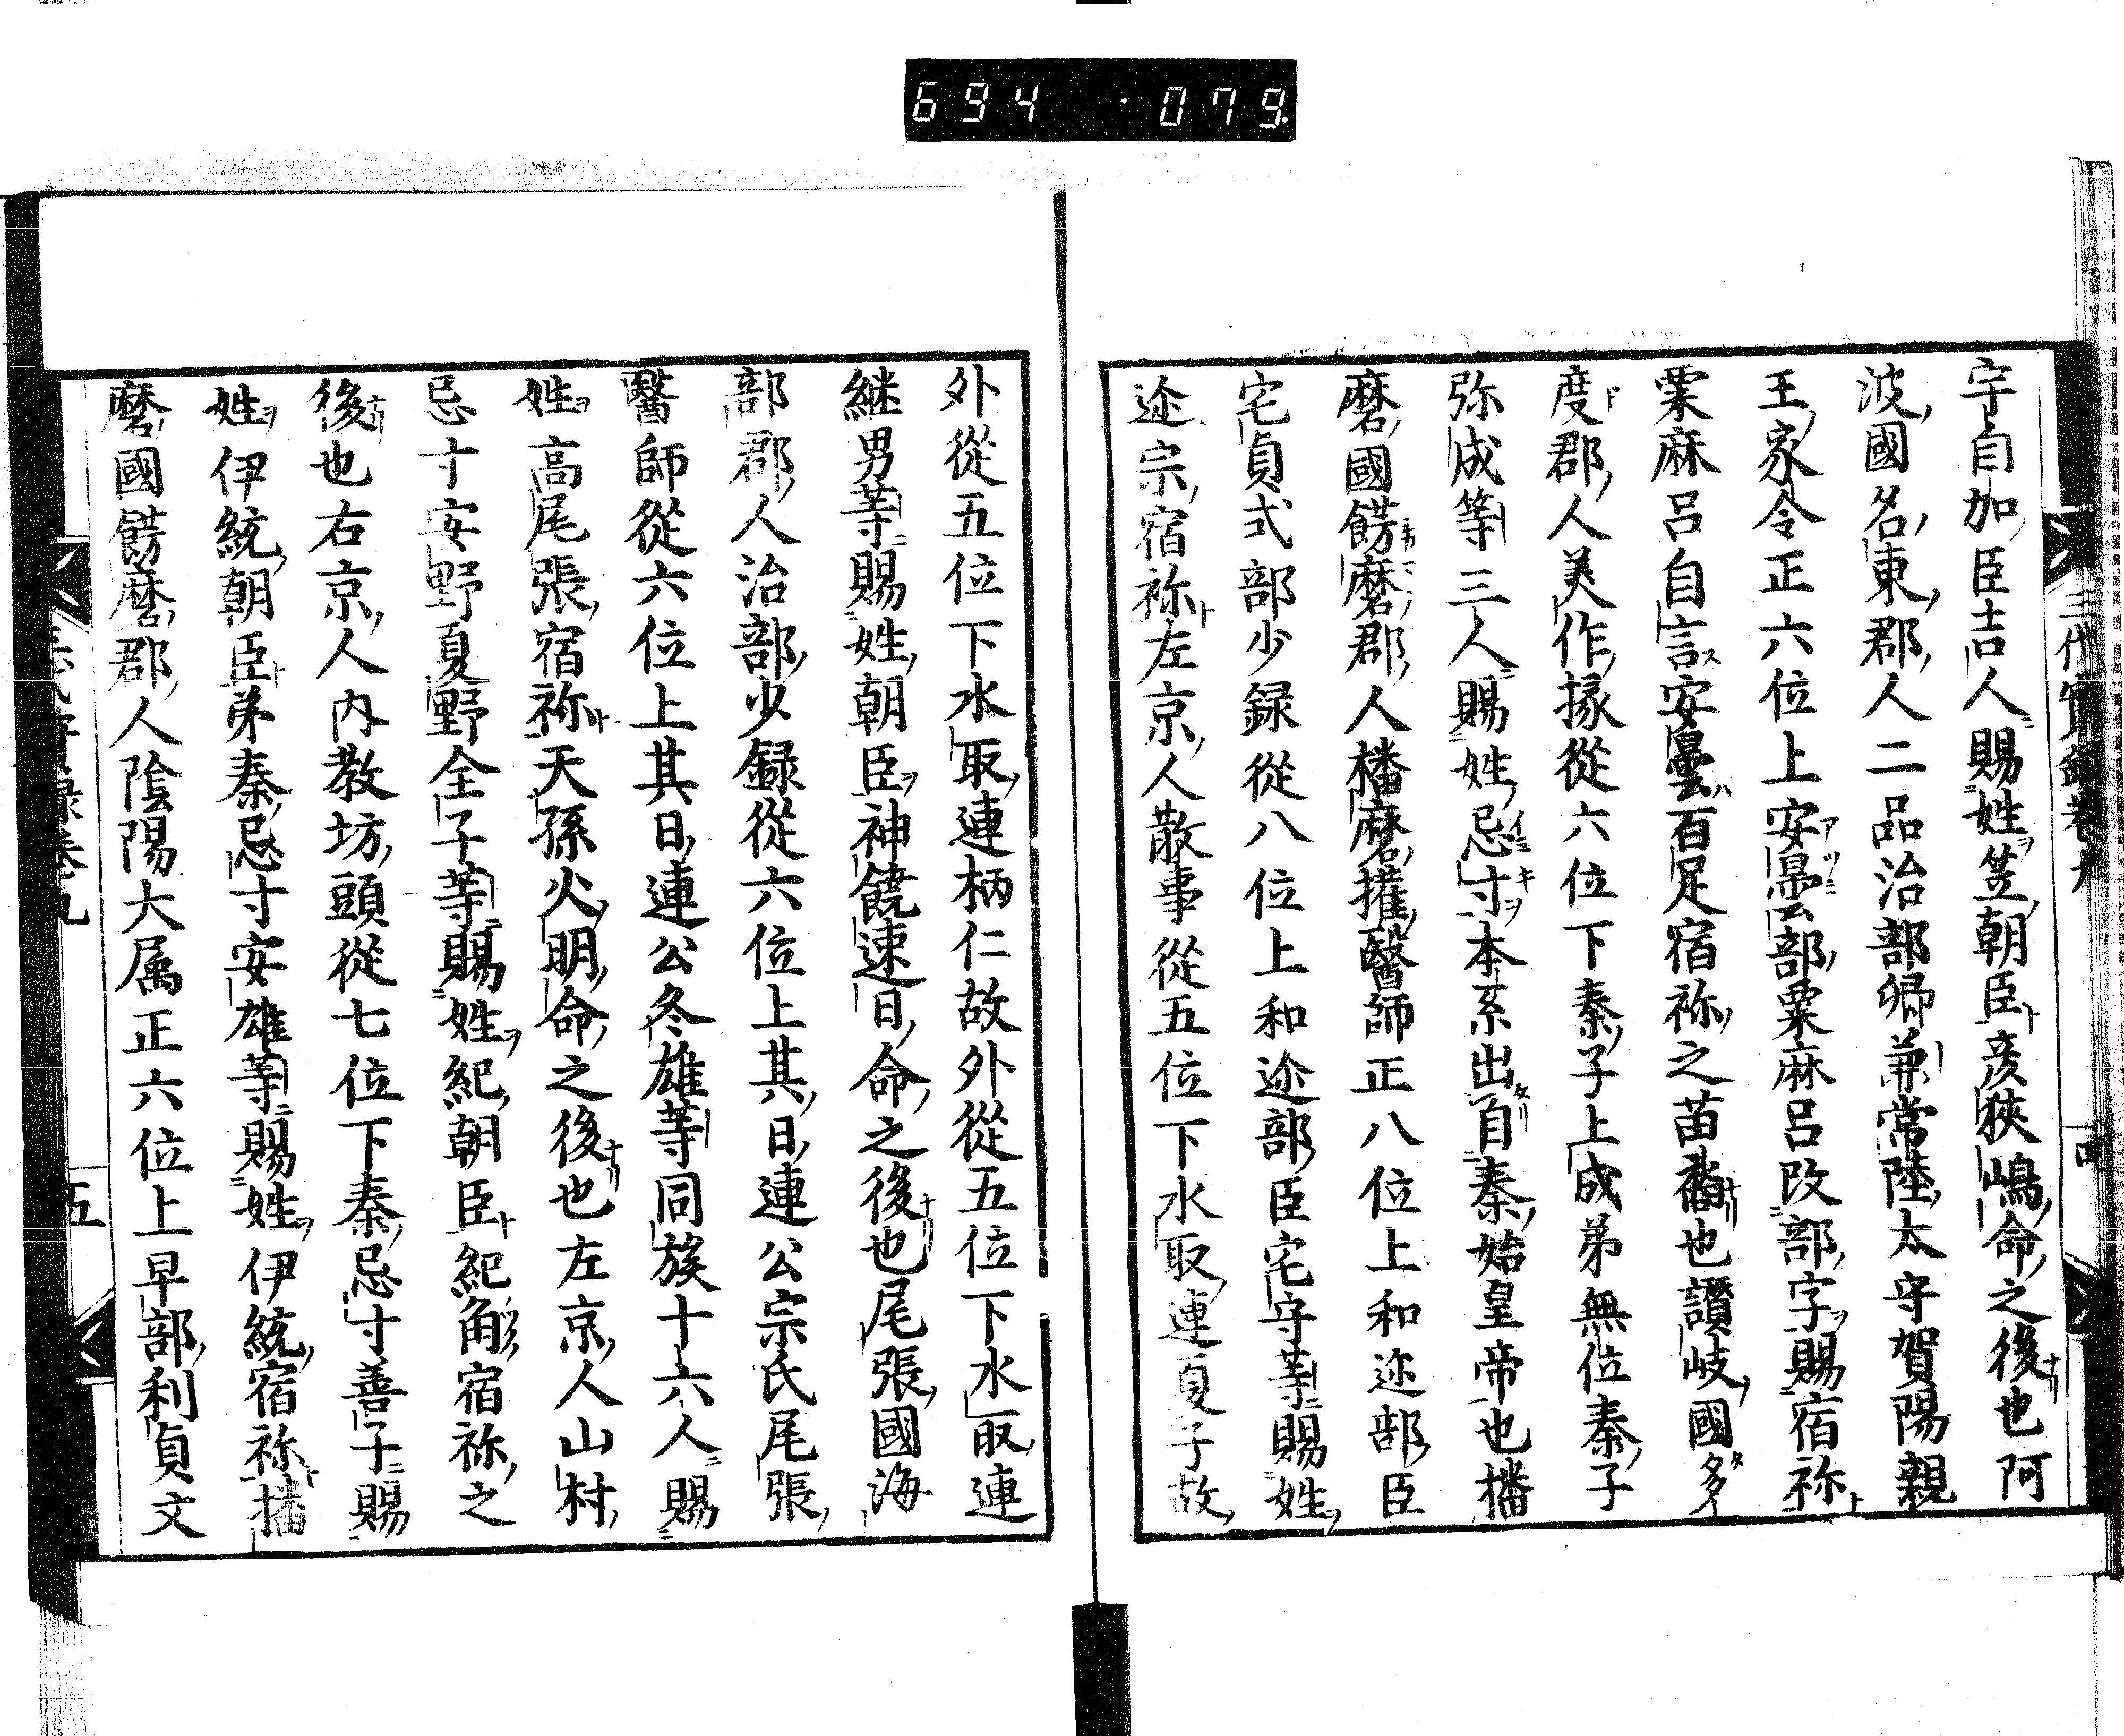 694 079
三代實録卷九
四
宇自加臣吉人賜姓笠朝臣彦狹嶋命之後也阿
波國名東郡人二品治部卿兼常陸太守賀陽親
王家令正六位上安曇部粟麻呂改部字賜宿祢
粟麻呂自言安曇百足宿祢之苗裔也讃岐國多
度郡人美作掾從六位下秦子上成弟無位秦子
弥成等三人賜姓忌寸本系出自秦始皇帝也播
磨國餝磨郡人播磨擁醫師正八位上和迩部臣
宅貞式部少録從八位上和迩部臣宅守等賜姓
迩宗宿祢左京人散事從五位下水取連夏子故
外從五位下水取連柄仁故外從五位下水取連
継男等賜姓朝臣神饒速日命之後也尾張國海
部郡人治部少録從六位上其日連公宗氏尾張
醫師從六位上其日連公冬雄等同族十六人賜
姓高尾張宿祢天孫火明命之後也左京人山村
忌寸安野夏野全子等賜姓紀朝臣紀角宿祢之
後也右京人内教坊頭從七位下秦忌寸善子賜
姓伊統朝臣弟秦忌寸安雄等賜姓伊統宿祢播
磨國餝磨郡人陰陽大属正六位上早部利貞文
三代實録卷九
五